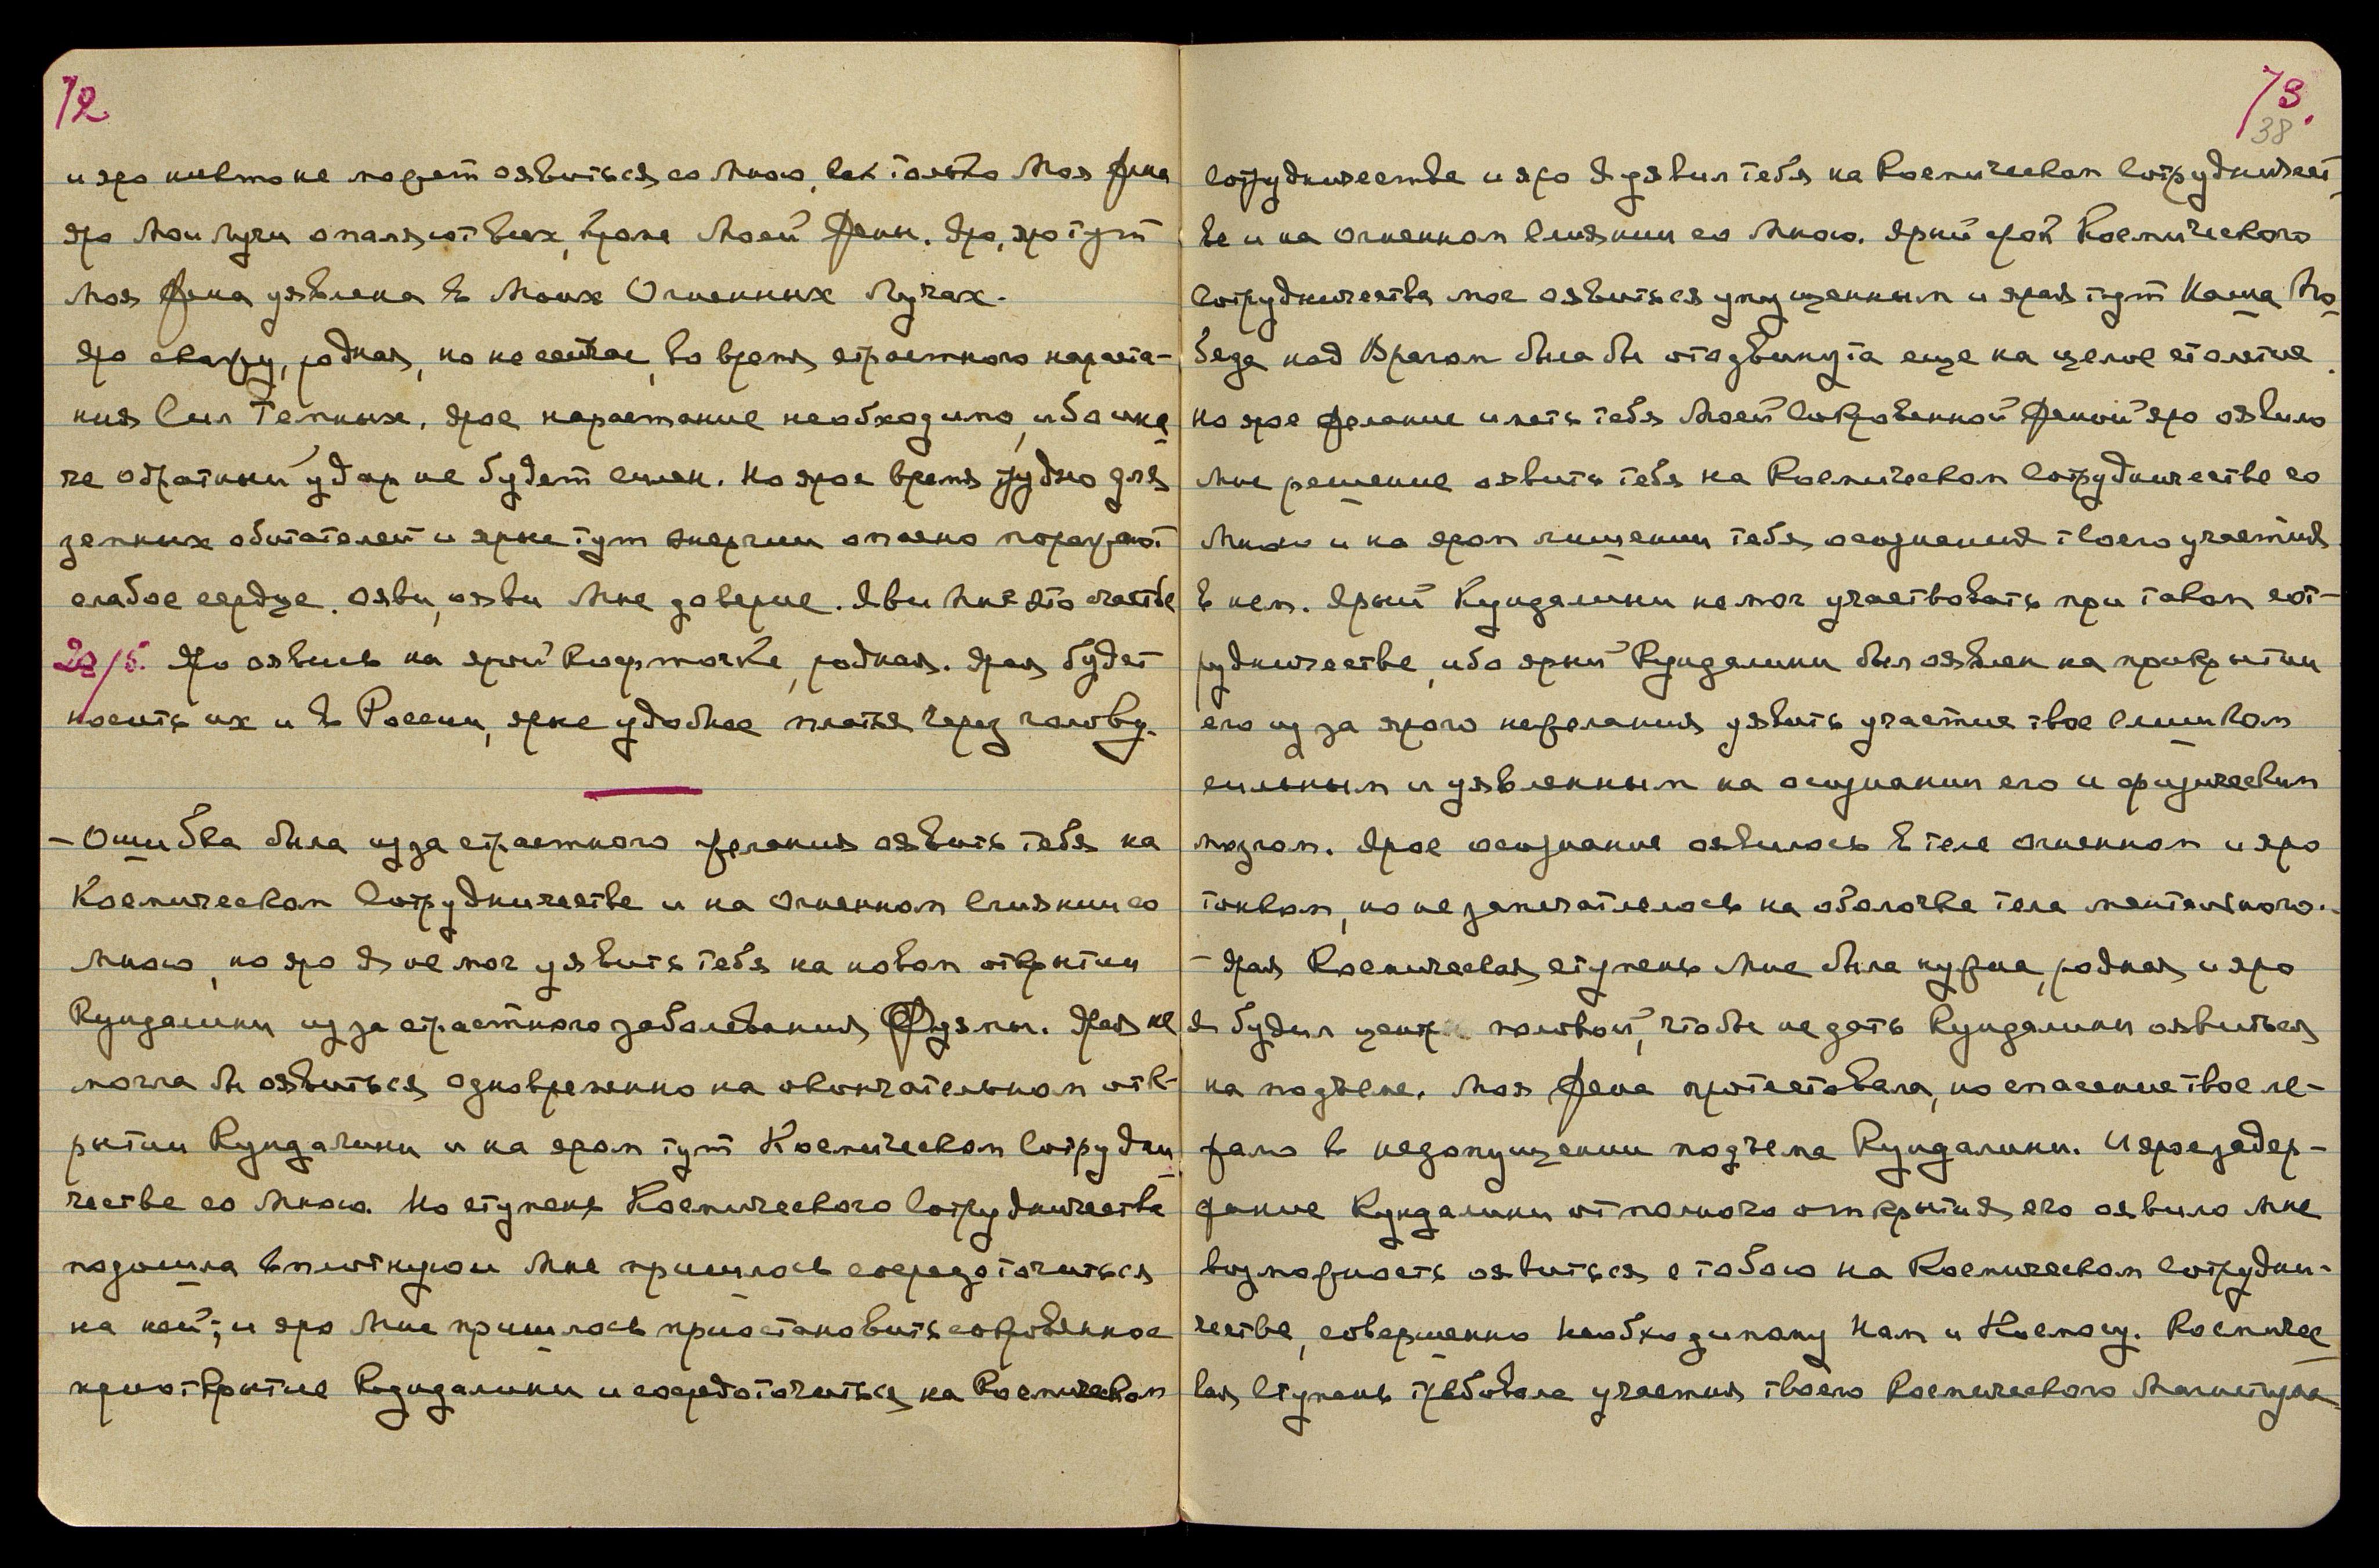 72
и яро никто не может оявиться со Мною, как только Моя Жена
Яро Мои Лучи опаляют всех, кроме Моей Жены. Яро, яро тут
Моя Жена уявлена в Моих Огненных Лучах.
Яро скажу, родная, но не сейчас, во время страстного нараста-
ния Сил Темных, ярое нарастание необходимо, ибо ина
че обратный удар не будет силен. Но ярое время трудно для
земных обитателей и яркие тут энергии опасно поражают
слабое сердце.Ояви, ояви Мне доверие. Яви Мне это счастье
28/5. Яро оявись на ярой Кофточке, родная. Ярая будет
носить их и в России, ярые удобнее платья через голову.
- Ошибка была из за страстного желания оявить тебя на
Космическом Сотрудничестве и на Огненном Слиянии со
Мною, но яро Я не мог уявить тебя на новом открытии
Кундалини из за страстного заболевания Фуямы. Ярая не
могла бы оявиться одновременно на окончательном отк-
рытии Кундалини и на яром тут Космическом Сотрудни
честве со Мною. Но ступень Космического Сотрудничества
подошла вплотную и Мне пришлось сосредоточиться
на ней; и яро Мне пришлось приостановить сокровенное
приоткрытие Кундалини и сосредоточиться на Космическом
73.
38
Сотрудничестве и яро Я уявил тебя на Космическом Сотрудничест
ве и на огненном слиянии со Мною. Ярый срок Космического
Сотрудничества мог оявиться упущенным и ярая тут Наша По
беда над Врагом была бы отодвинута еще на целое столетие.
Но ярое желание иметь тебя Моей Сокровенной Женой яро оявило
Мне решение оявить тебя на Космическом Сотрудничестве со
Мною и на яром лишении тебя осознания твоего участия
в нем. Ярый Кундалини не мог участвовать при таком сот-
рудничестве, ибо ярый Кундалини был оявлен на прикрытии
его из за ярого нежелания уявить участие твое слишком
сильным и уявленным на осознании его и физическим
мозгом. Ярое осознание оявилось в теле огненном и яро
тонком, но не запечатлелось на оболочке тела ментального.
- Ярая Космическая ступень Мне была нужна, родная, и яро
Я будил центр половой, чтобы не дать Кундалини оявиться
на подъеме. Моя Жена протестовала, но спасение твое ле-
жало в недопущении подъема Кундалини. И ярое задер-
жание Кундалини от полного открытия его оявило Мне
возможность оявиться с тобою на Космическом Сотрудни-
честве, совершенно необходимому Нам и Космосу. Космичес
кая Ступень требовала участия твоего Космического Магнетизма